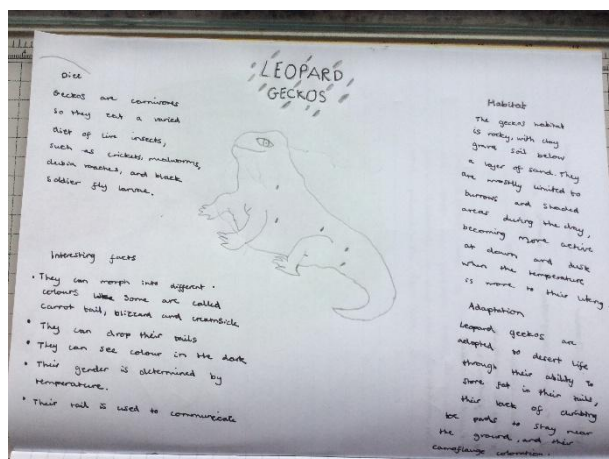 LEOPARD
GECKOS
Diet
Geckos are carnivores
so they eat a varied
diet of live insects,
such as crickets, mealworms,
dubia roaches, and black
soldier fly larvae.
Interesting facts
• They can morph into different
colours some are called
carrot tail, blizzard and creamsicle
• They can drop their tails
• They can see colour in the dark
• Their gender is determined by
temperature.
• Their tail is used to communicate
Habitat
The geckos habitat
is rocky, with clay
grave soil below
a layer of sand. They
are mostly limited to
burrows and shaded
areas during the day,
becoming more active
at dawn and dusk
when the temperature
is more to their liking
Adaptation
Leopard geckos are
adapted to desert life
through their ability to
store fat in their tails,
their lack of climbing
toe pads to stay near
the ground, and their
camoflauge coloration.